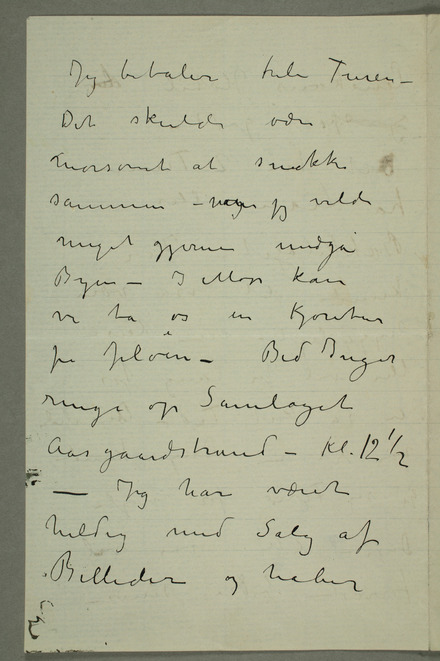 Jeg betaler hele Turen –
Det skulde være
morsomt at snakke
sammen – jeg vilde
meget gjerne undgå
Byen – I Moss kan
vi ta os en Kjøretur
på Jeløen – Bed Inger
ringe op Samlaget
Aasgaardstrand – Kl. 12 1/2
— Jeg har været
heldig med Salg af
Billeder og haber